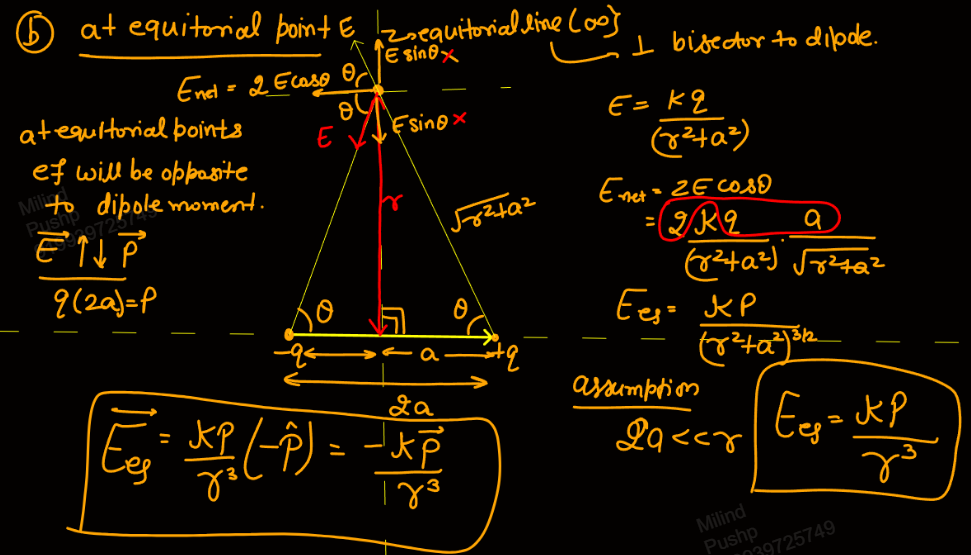 (b) at equitorial point
E
→ equitorial line (∞)
⊥ bisector to dipole.
E sinθ ×
θ
E_net = 2 E cosθ
θ
E
E sinθ ×
at equitorial points
ef will be opposite
to dipole moment.
E⃗ ↑↓ P⃗
q(2a) = P
r
√r²+a²
θ
θ
-q
a
+q
2a
E = kq/(r²+a²)
E_net = 2E cosθ
= 2kq/(r²+a²) · a/√r²+a²
E_eq = kP/(r²+a²)^3/2
assumption
2a << r
E_eq = kP/r³
E⃗_eq = kP/r³ (-p̂) = -kP⃗/r³
Milind
Pushp
9939725749
Milind
Pushp
9939725749